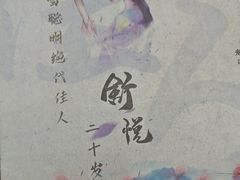 聪明绝代佳人
新悦
二十岁